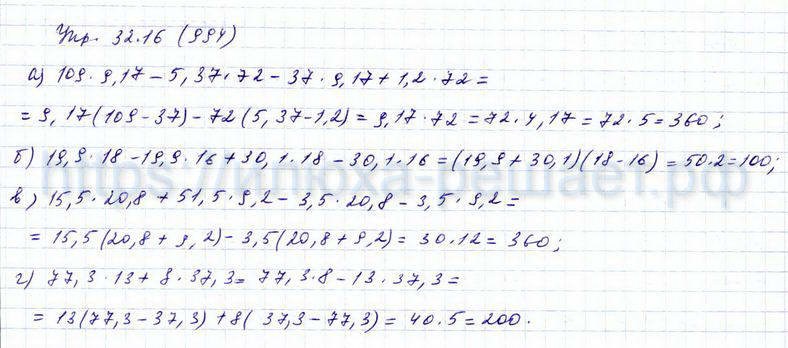 Упр. 32.16 (994)
а) 109 · 9,17 – 5,37 · 72 – 37 · 9,17 + 1,2 · 72 =
= 9,17(109 – 37) – 72(5,37 – 1,2) = 9,17 · 72 = 72 · 4,17 = 72 · 5 = 360;
б) 19,9 · 18 – 19,9 · 16 + 30,1 · 18 – 30,1 · 16 = (19,9 + 30,1)(18 – 16) = 50 · 2 = 100;
в) 15,5 · 20,8 + 51,5 · 9,2 – 3,5 · 20,8 – 3,5 · 9,2 =
= 15,5(20,8 + 9,2) – 3,5(20,8 + 9,2) = 30 · 12 = 360;
г) 77,3 · 13 + 8 · 37,3 = 77,3 · 8 – 13 · 37,3 =
= 13(77,3 – 37,3) + 8(37,3 – 77,3) = 40 · 5 = 200.